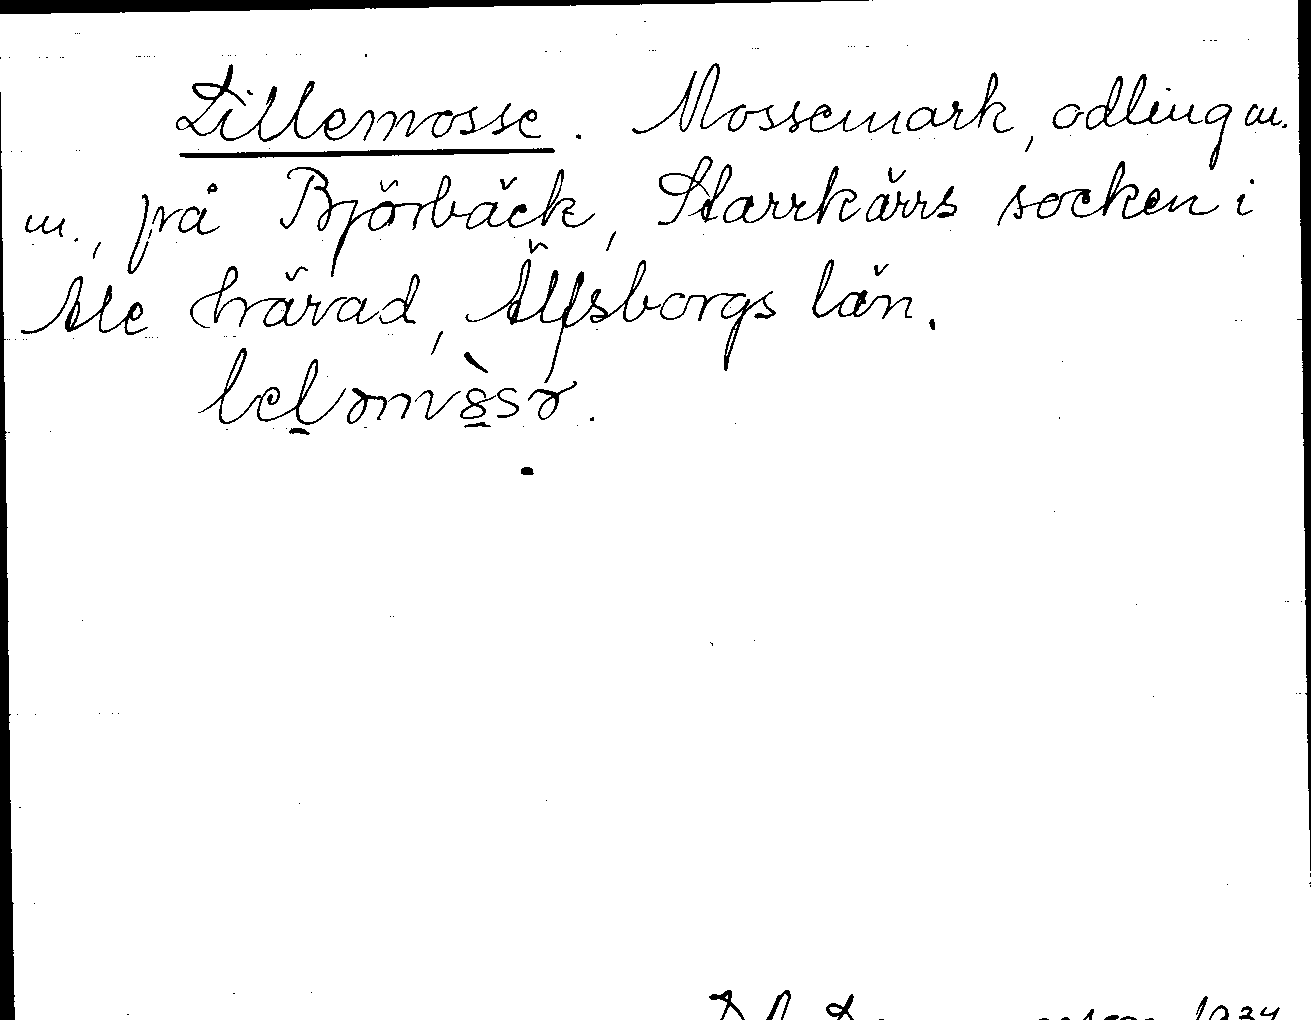 Lillemosse. Mossemark, odling m.
m., på Björbäck, Starrkärrs socken i
Ale härad, Älfsborgs län.
leləmòsə.
1934